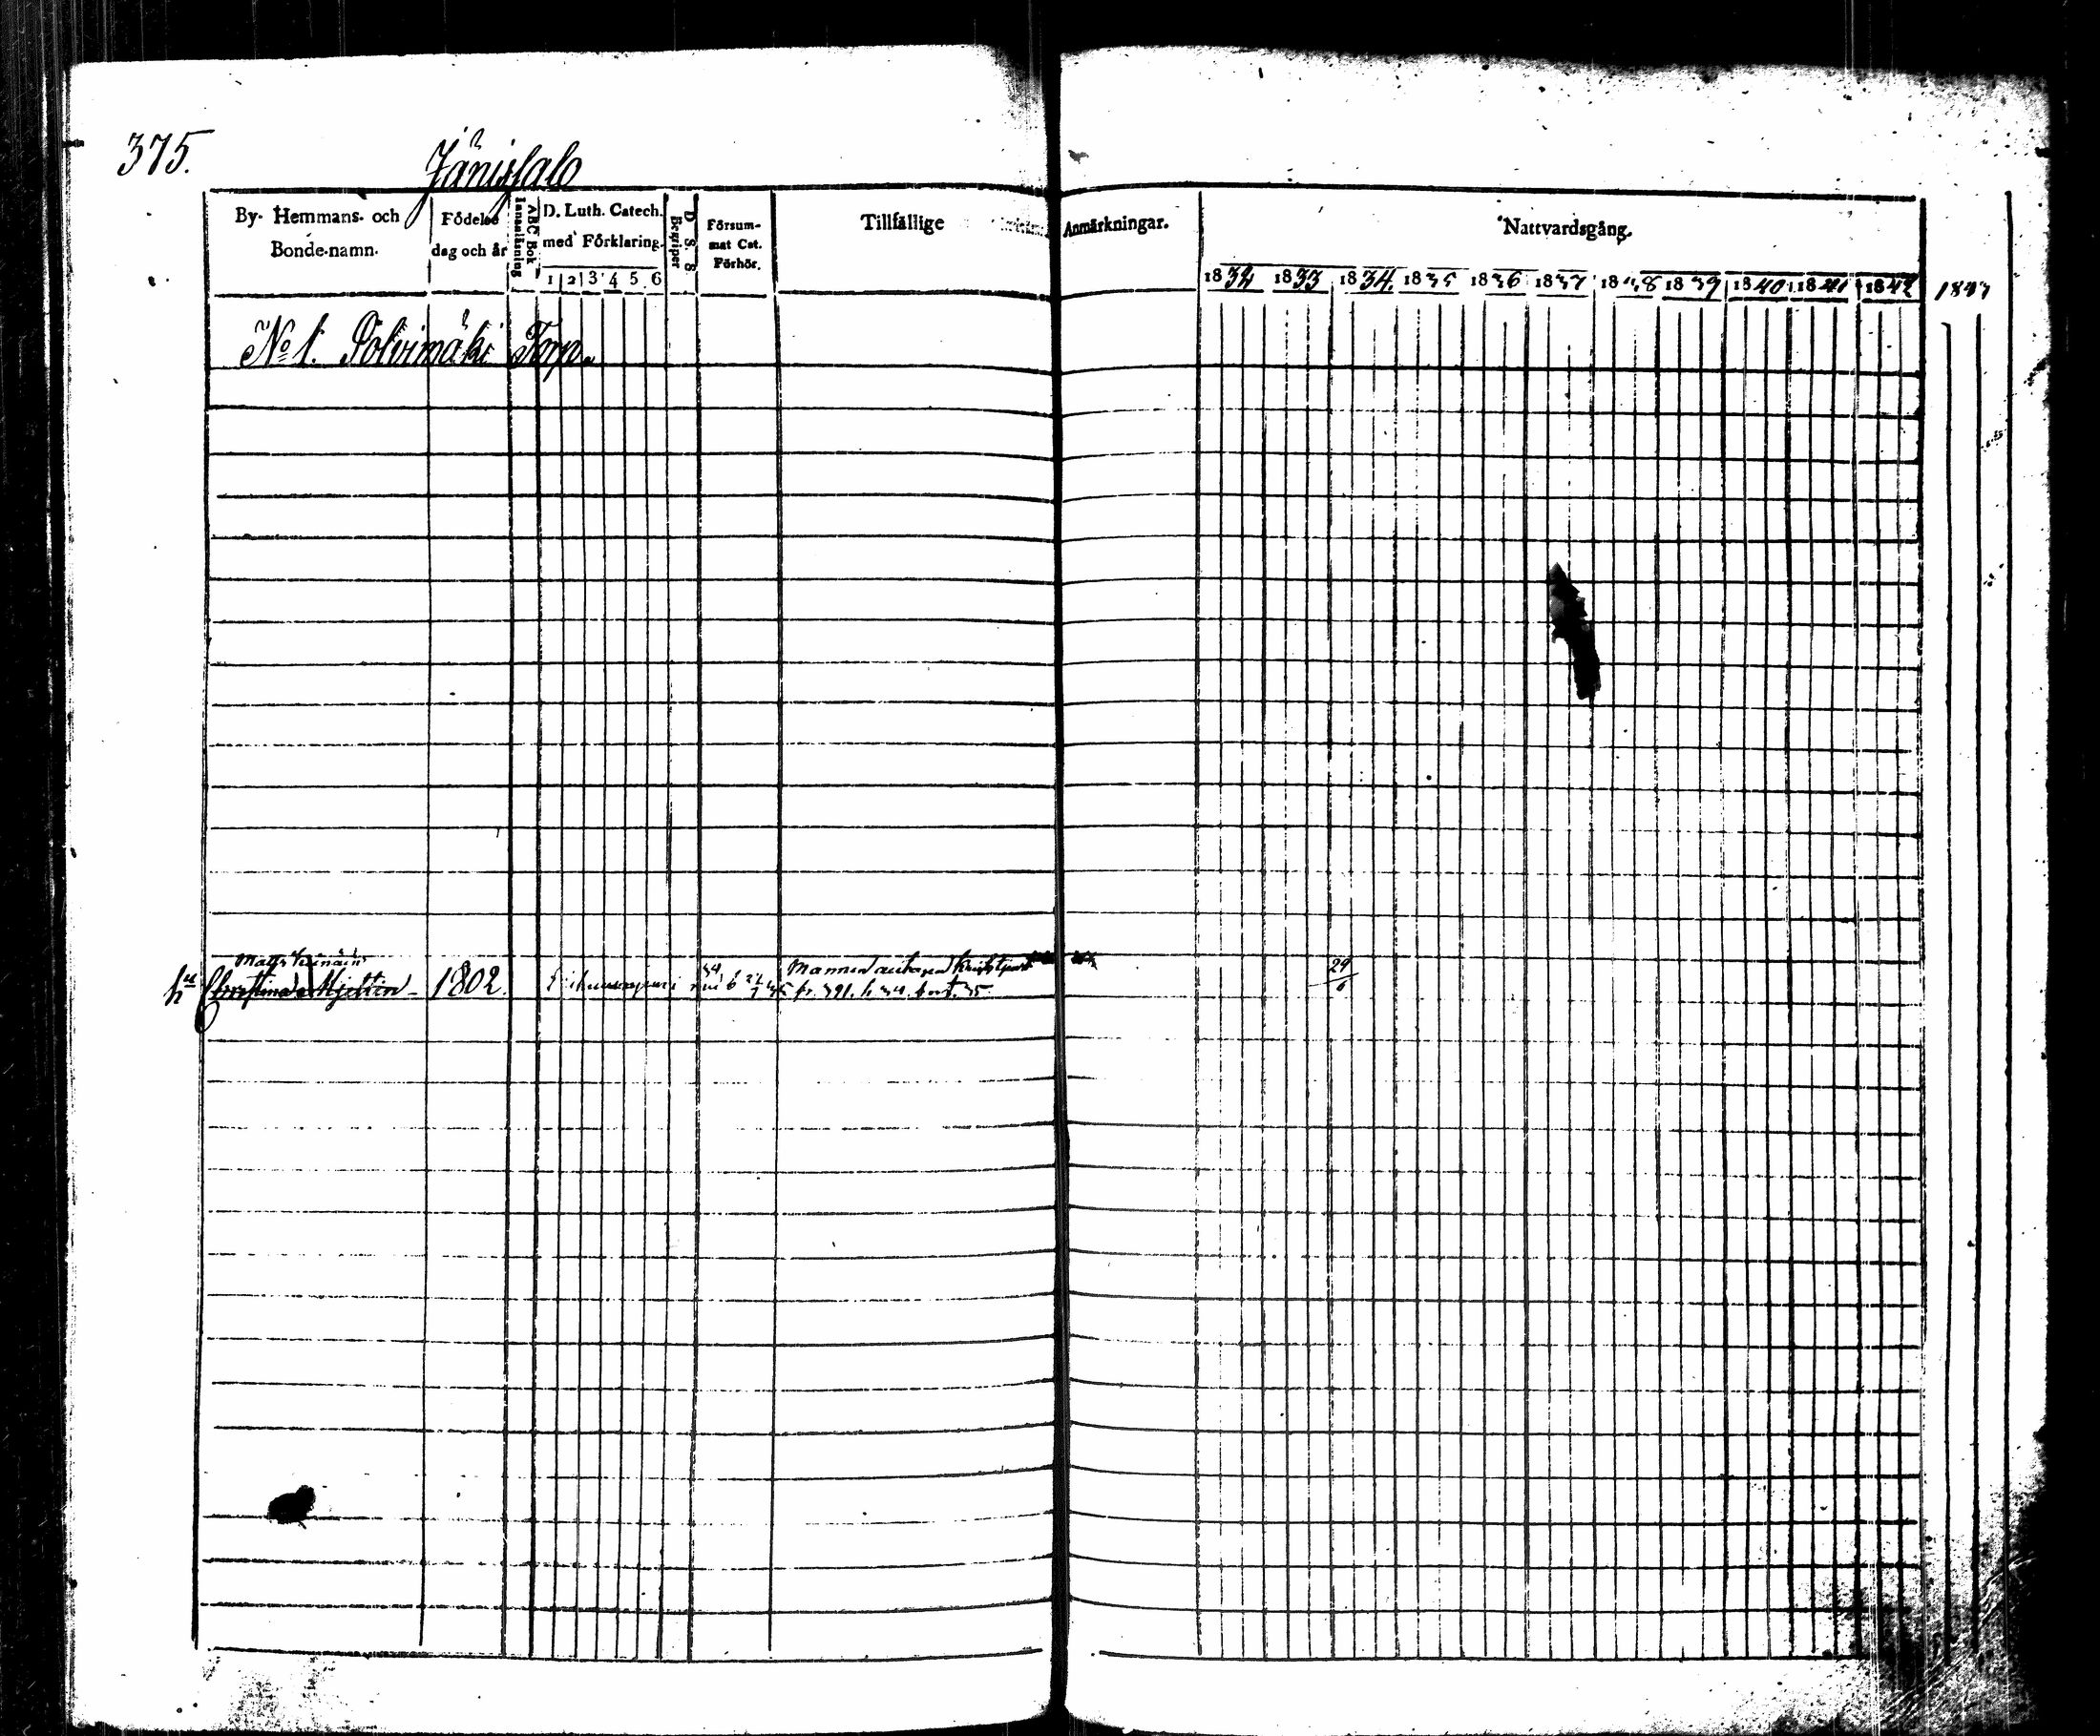 375.
Jänissalo
By- Hemmans- och
Bonde-namn.
Födelse
dag och år
Innanläsning
ABC Bok
D. Luth. Catech.
med Förklaring.
1 2 3 4 5 6
D. S. S.
Begriper
Försum-
mat Cat.
Förhör.
Tillfällige
Anmärkningar.
Nattvardsgång.
1832 1833 1834. 1835 1836 1837 1838 1839 1840 1841 1842 1843
No 1. Polvimäki Torp.
Matts
hu Christina Hjeltin 1802.
Mannen
fr. 391. h 34. bort. 35.
29/6